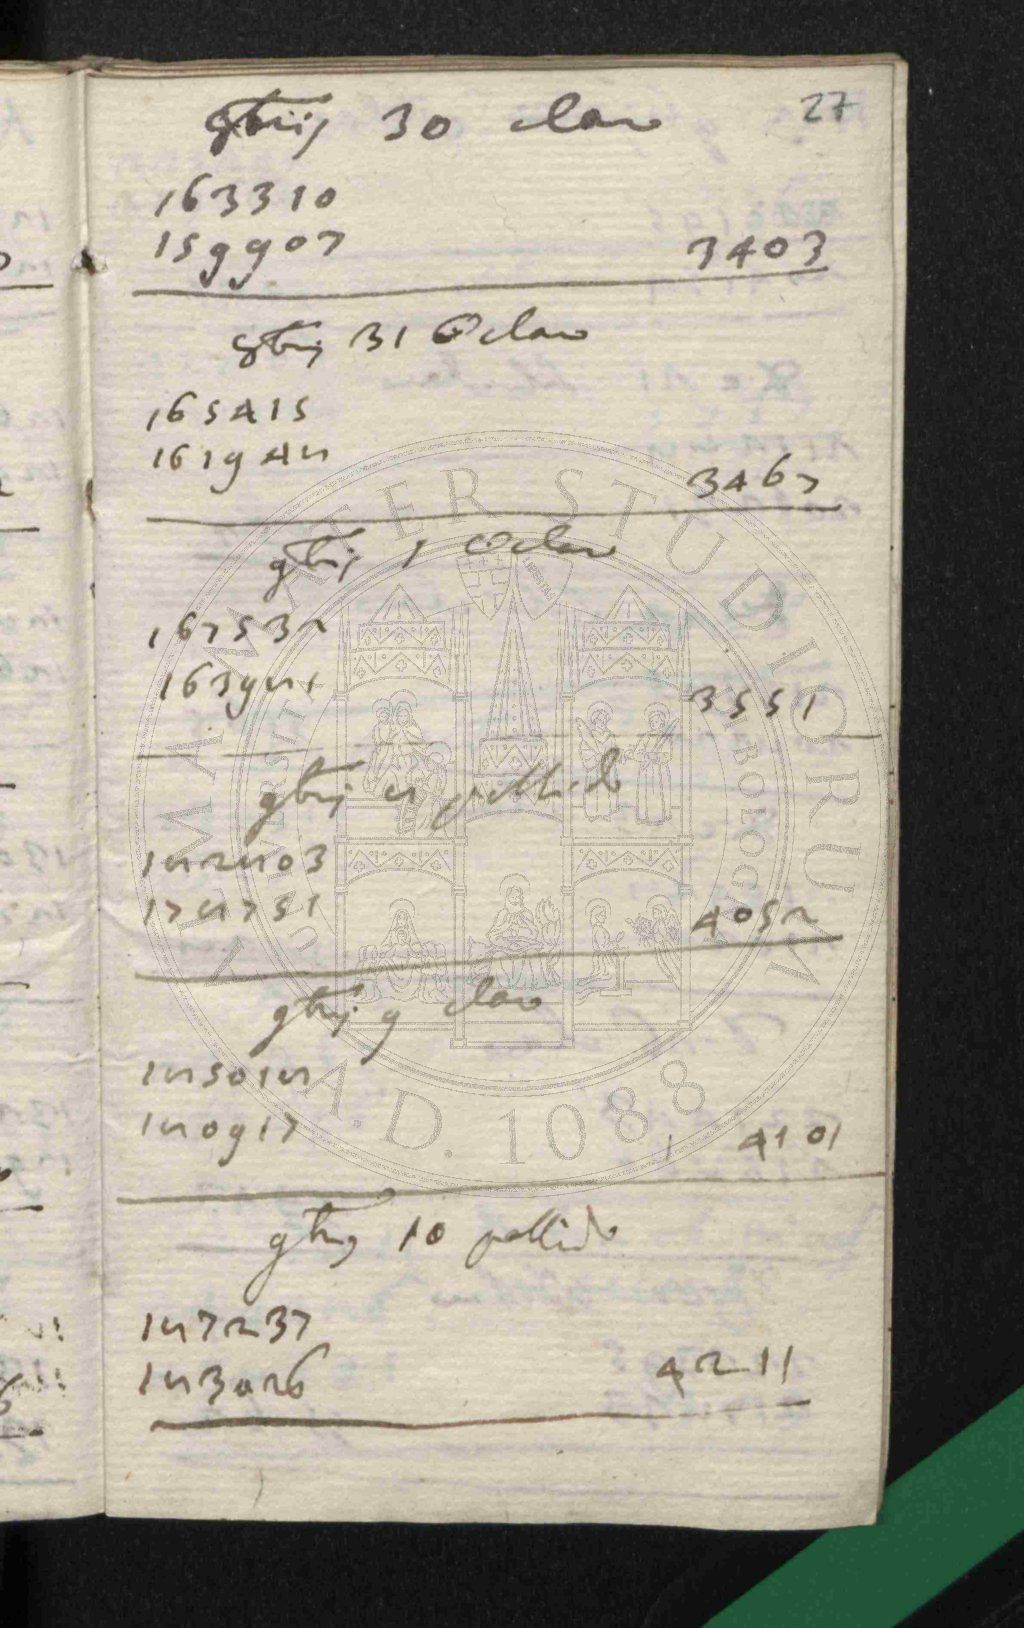 27
9brij 30 claro
163310
159907 3403
9brij 31 ☉ claro
165415
161948 3467
9brij 1 ☉ claro
167532
163981 3551
9brij 8 pallido
182803
178751 4052
9brij 9 claro
185018
180917 4101
9brij 10 pallido
187237
183026 4211
ALMA MATER STUDIORUM
A.D. 1088